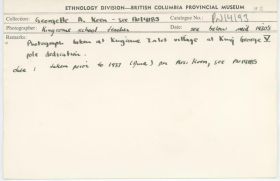 ETHNOLOGY DIVISION—BRITISH COLUMBIA PROVINCIAL MUSEUM
Collection: Georgette A. Korn - see PN14183 Catalogue No.: PN14192
Photographer: Kingcome school teacher Date: see below mid 1930's
Remarks:
Photograph taken at Kingcome Inlet village at King George V
pole dedication.
date: taken prior to 1937 (June) per Mrs. Korn, see PN14183